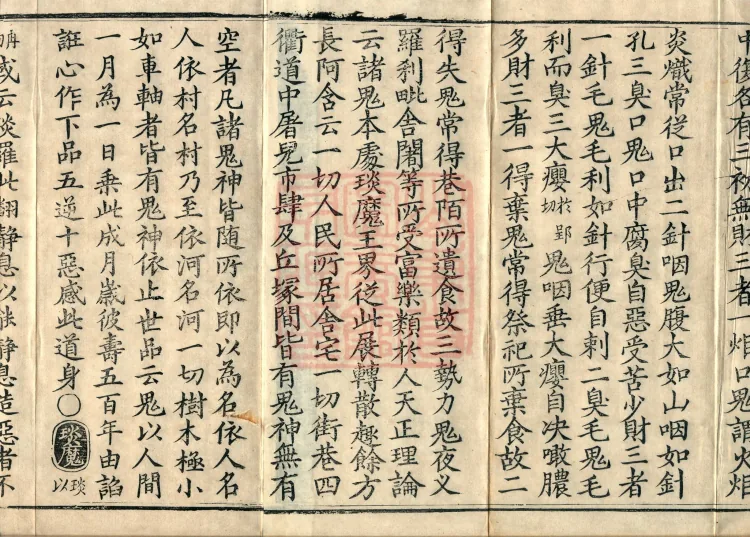 中復各有三初無財三者一炬口鬼謂火炬
炎熾常從口出二針咽鬼腹大如山咽如針
孔三臭口鬼口中腐臭自惡受苦少財三者
一針毛鬼毛利如針行便自剌二臭毛鬼毛
利而臭三大癭於郢切鬼咽垂大癭自决噉膿
多財三者一得棄鬼常得祭祀所棄食故二
得失鬼常得巷陌所遺食故三勢力鬼夜义
羅刹毗舍闍等所受富樂類於人天正理論
云諸鬼本處琰魔王界從此展轉散趣餘方
長阿含云一切人民所居舍宅一切街巷四
衢道中屠兒市肆及丘塚間皆有鬼神無有
空者凡諸鬼神皆隨所依即以為名依人名
人依村名村乃至依河名河一切樹木極小
如車軸者皆有鬼神依止世品云鬼以人間
一月為一日乘此成月歲彼壽五百年由諂
誑心作下品五逆十惡感此道身○琰魔以琰
或云琰羅此翻靜息以能靜息造惡者不